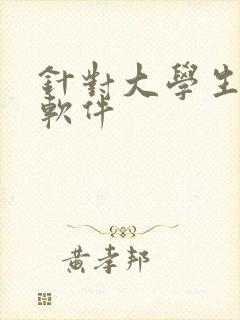 針對大學生
軟件
黃孝邦